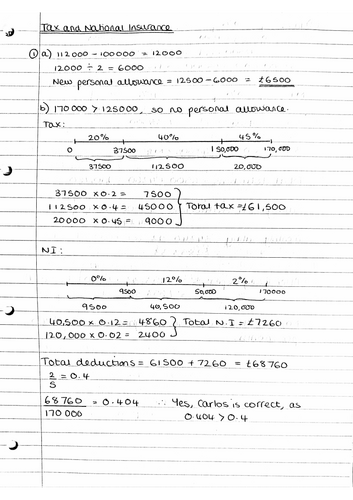 Tax and National Insurance
① a) 112000 - 100000 = 12000
12000 ÷ 2 = 6000
New personal allowance = 12500 - 6000 = £6500
b) 170000 > 125000, so no personal allowance.
Tax:
20% 40% 45%
0 37500 150,000 170,000
37500 112500 20,000
37500 × 0.2 = 7500
112500 × 0.4 = 45000
20000 × 0.45 = 9000
Total tax = £61,500
NI:
0% 12% 2%
9500 50,000 170000
9500 40,500 120,000
40,500 × 0.12 = 4860
120,000 × 0.02 = 2400
Total N.I = £7260
Total deductions = 61500 + 7260 = £68760
2/5 = 0.4
68760/170000 = 0.404 ∴ Yes, Carlos is correct, as
0.404 > 0.4